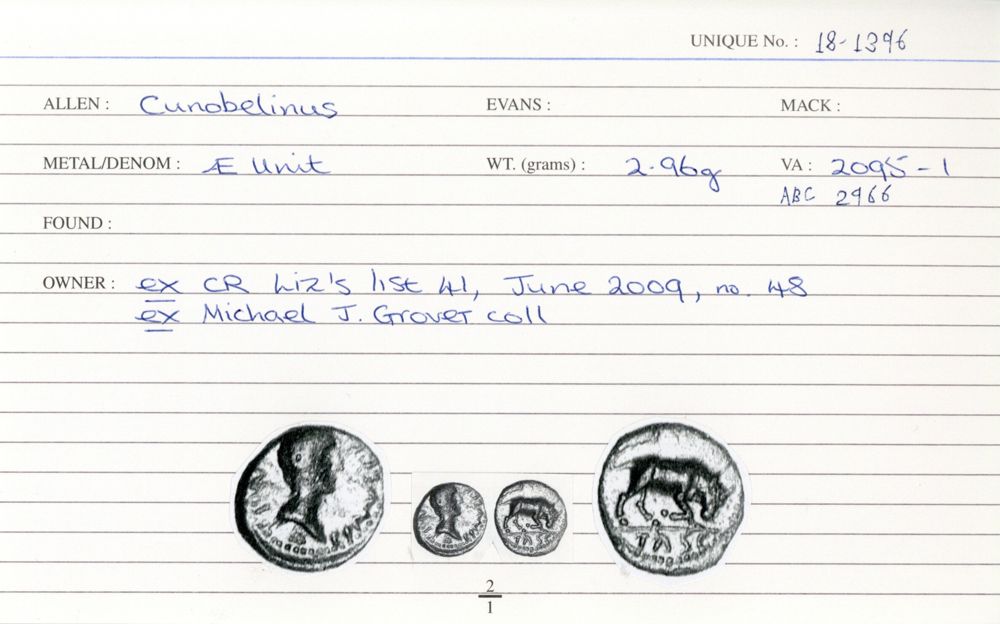 UNIQUE No. : 18-1396
ALLEN : Cunobelinus EVANS : MACK :
METAL/DENOM : Æ Unit WT. (grams) : 2.96g VA : 2095-1
ABC 2966
FOUND :
OWNER : ex CR Liz's list 41, June 2009, no. 48
ex Michael J. Grover coll
TASC
2
1